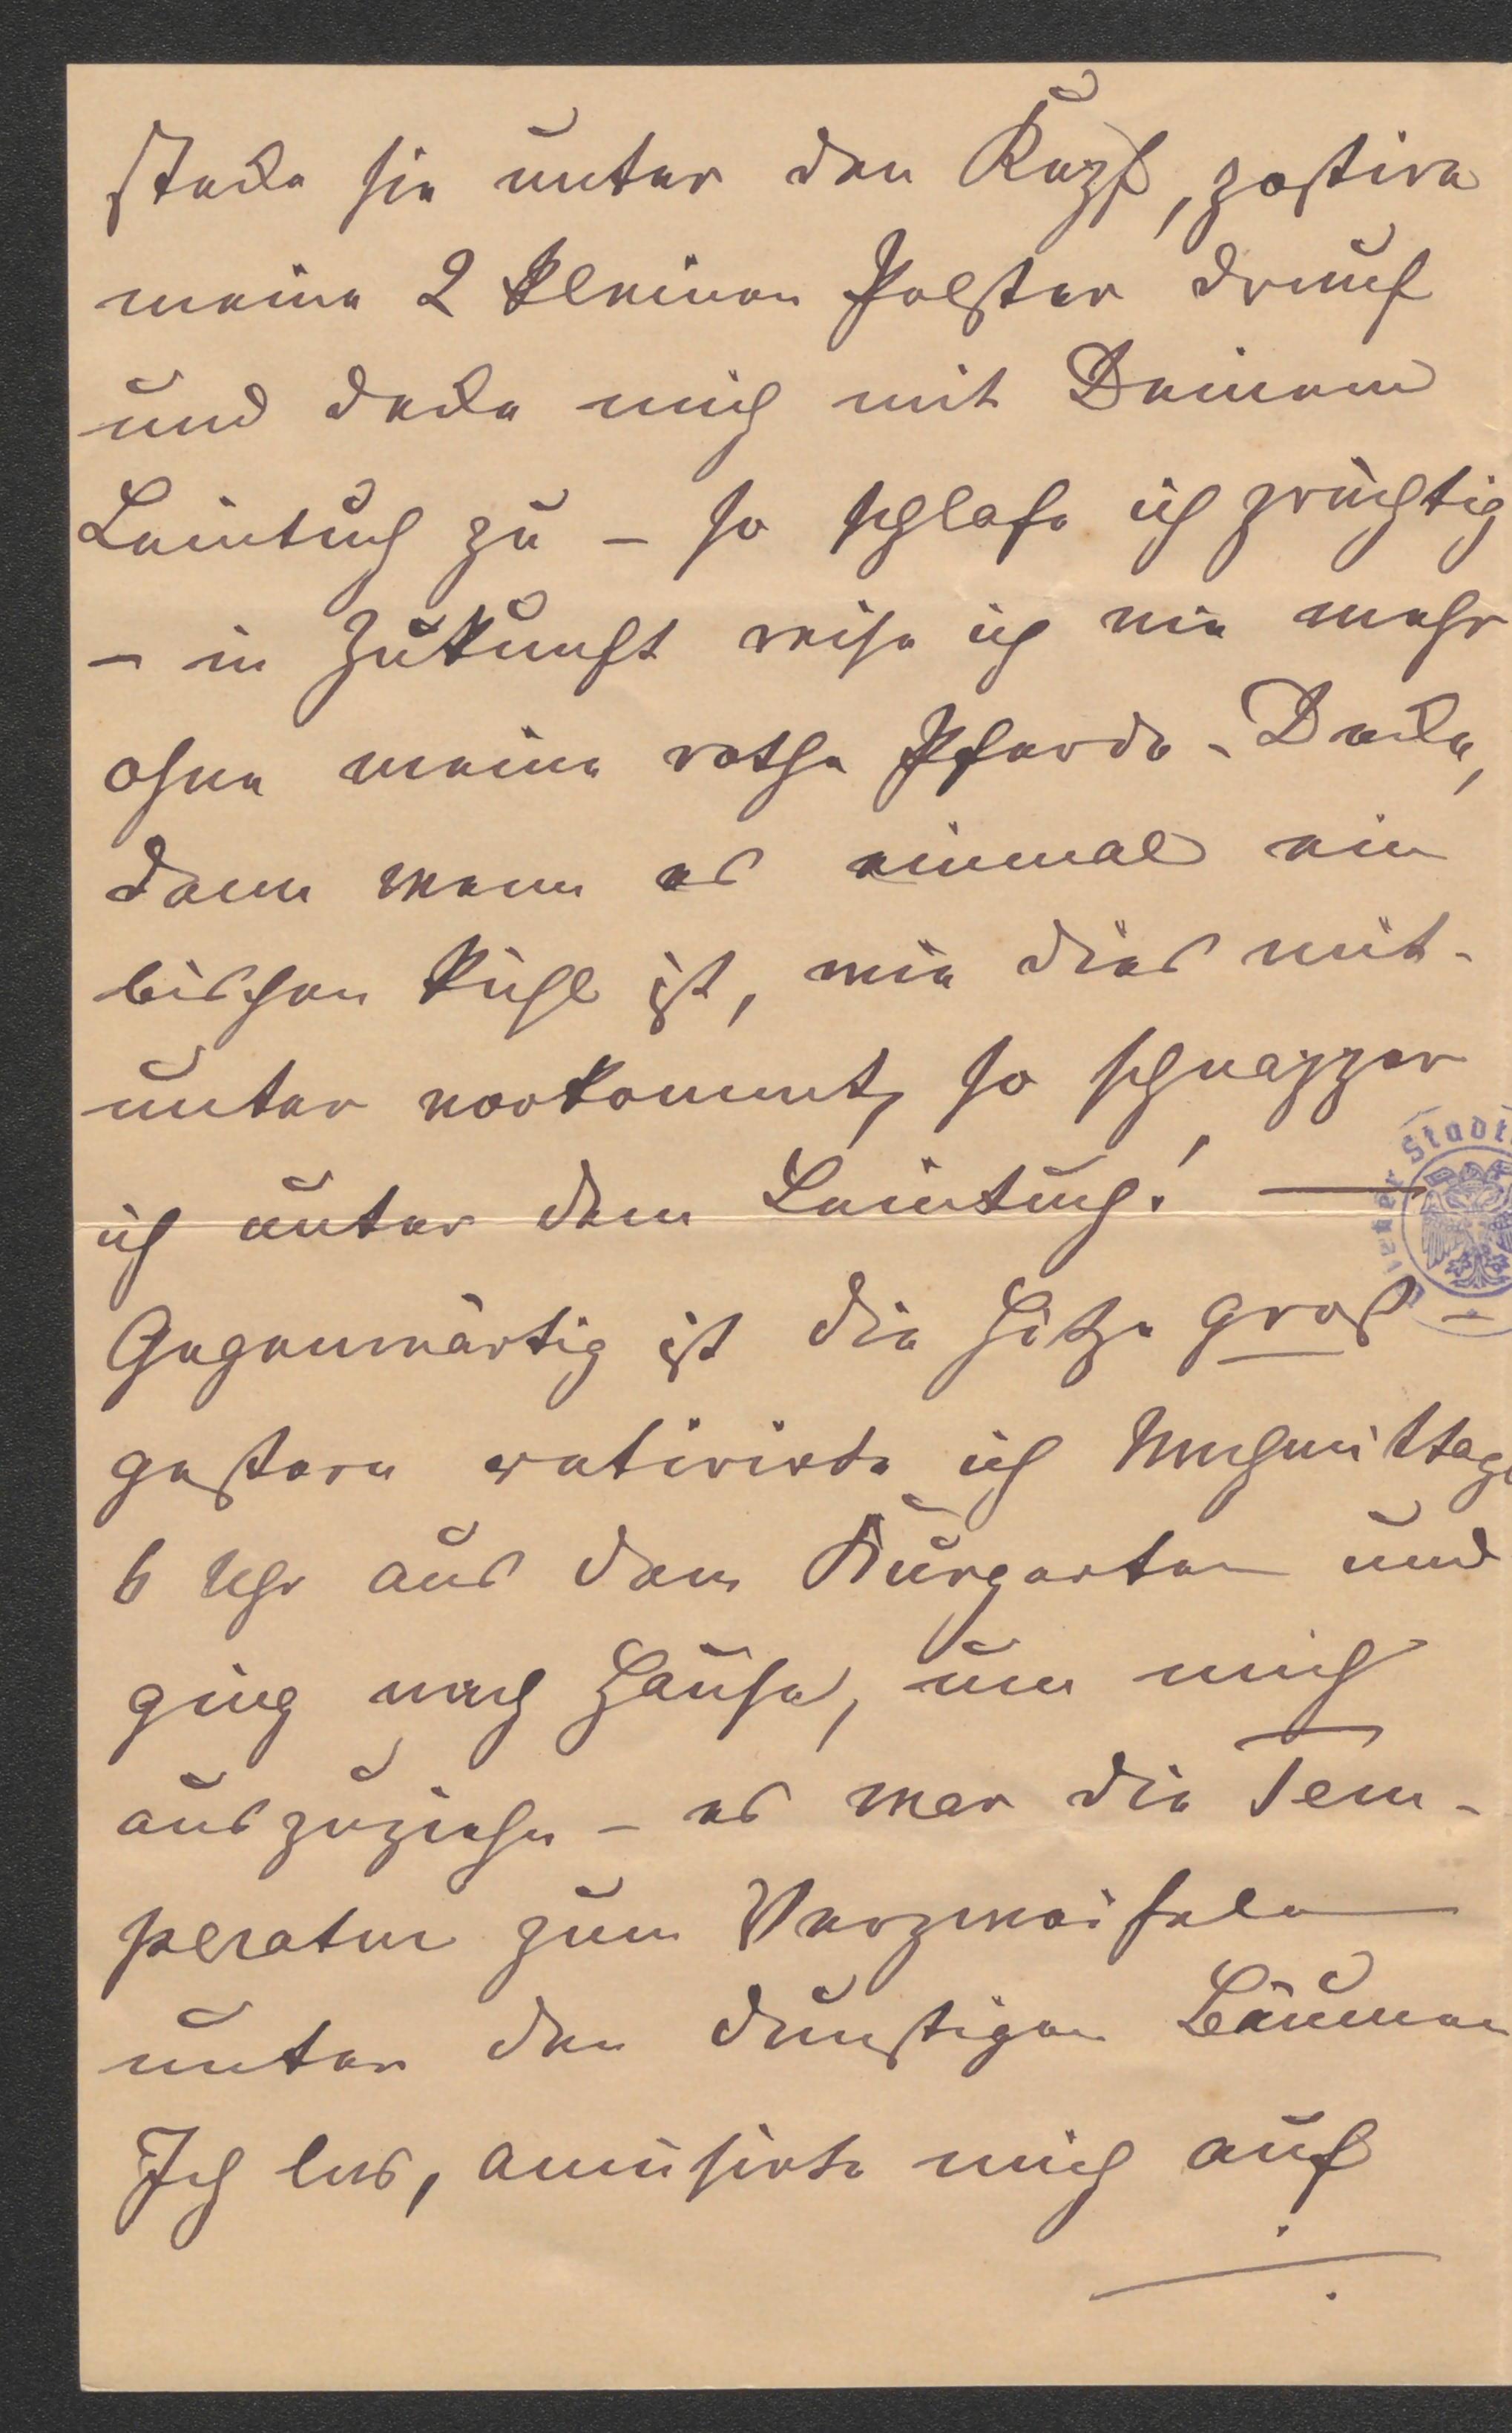 stecke sie unter den Kopf, postire
meine 2 kleinen Polster drauf
und decke mich mit Deinem
Leintuch zu – so schlafe ich prächtig
– in Zukunft reise ich nie mehr
ohne meine rothe Pferde-Decke,
denn wenn es einmal ein
bischen kühl ist, wie dies mit-
unter vorkommt, so schnapper
ich unter dem Leintuch! —
Gegenwärtig ist die Hitze groß –
gestern retirirte ich Nachmittags
6 Uhr aus dem Kurgarten und
ging nach Hause, um mich
auszuziehen – es war die Tem-
peratur zum Verzweifeln
unter den dunstigen Bäumen
Ich las, amüsirte mich auf
Stadt